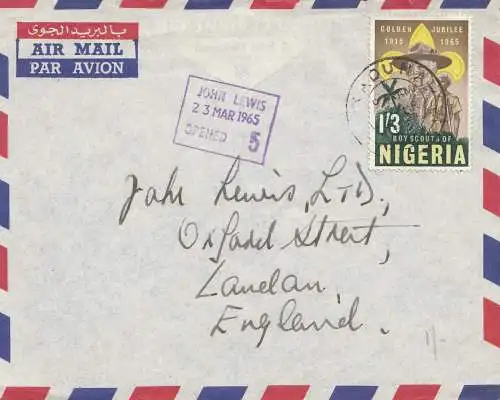 بالبريد الجوى
AIR MAIL
PAR AVION
JOHN LEWIS
23 MAR 1965
OPENED 5
GOLDEN JUBILEE
1915 1965
KADUNA
1/3
BOY SCOUTS OF
NIGERIA
John Lewis, LTD.,
Oxford Street,
London,
England.
1/-